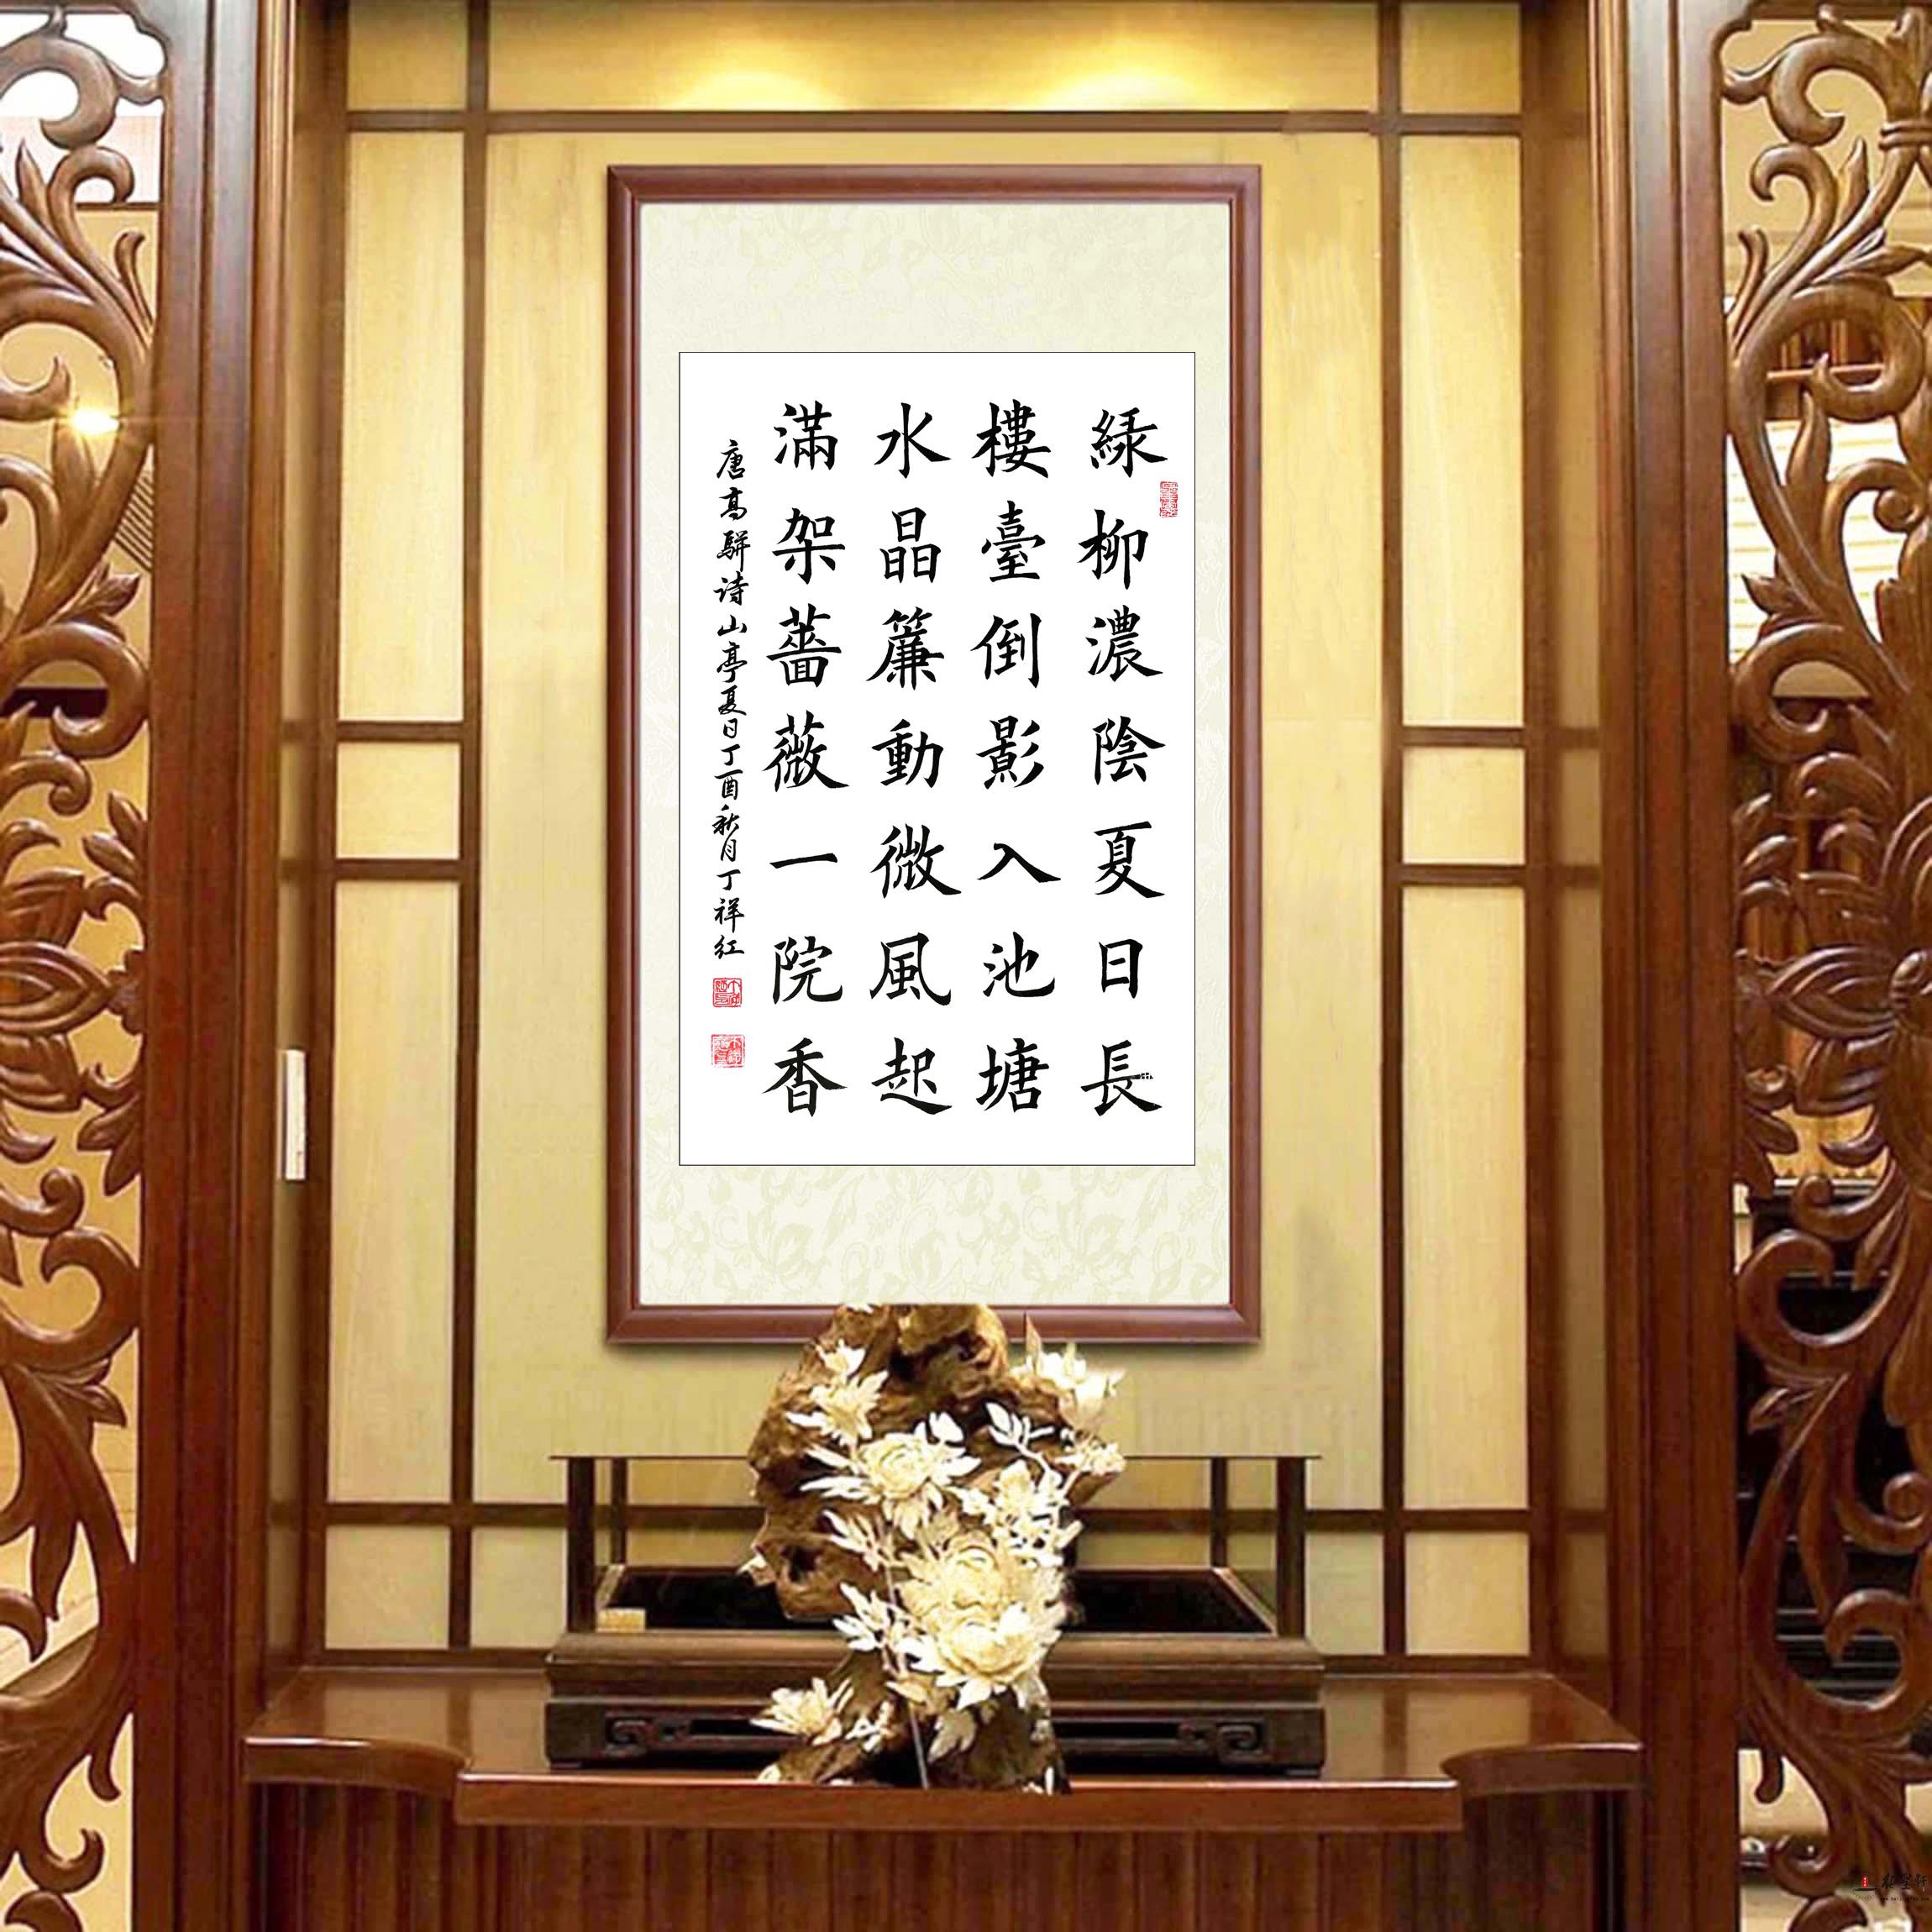 緑柳濃陰夏日長
樓臺倒影入池塘
水晶簾動微風起
滿架薔薇一院香
唐高駢诗山亭夏日丁酉秋月丁祥红